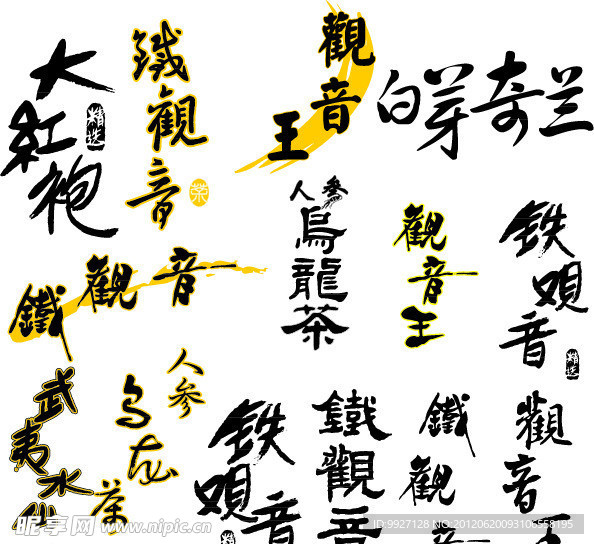 大紅袍
精选
鐵觀音
茶
觀音王
白芽奇兰
鐵觀音
人參
烏龍茶
觀音王
铁观音
精选
武夷水仙
人参
乌龙
茶
铁观音
鐵觀音
鐵觀
觀音王
昵享网 www.nipic.cn
ID:9927128 NO:20120620093106558195